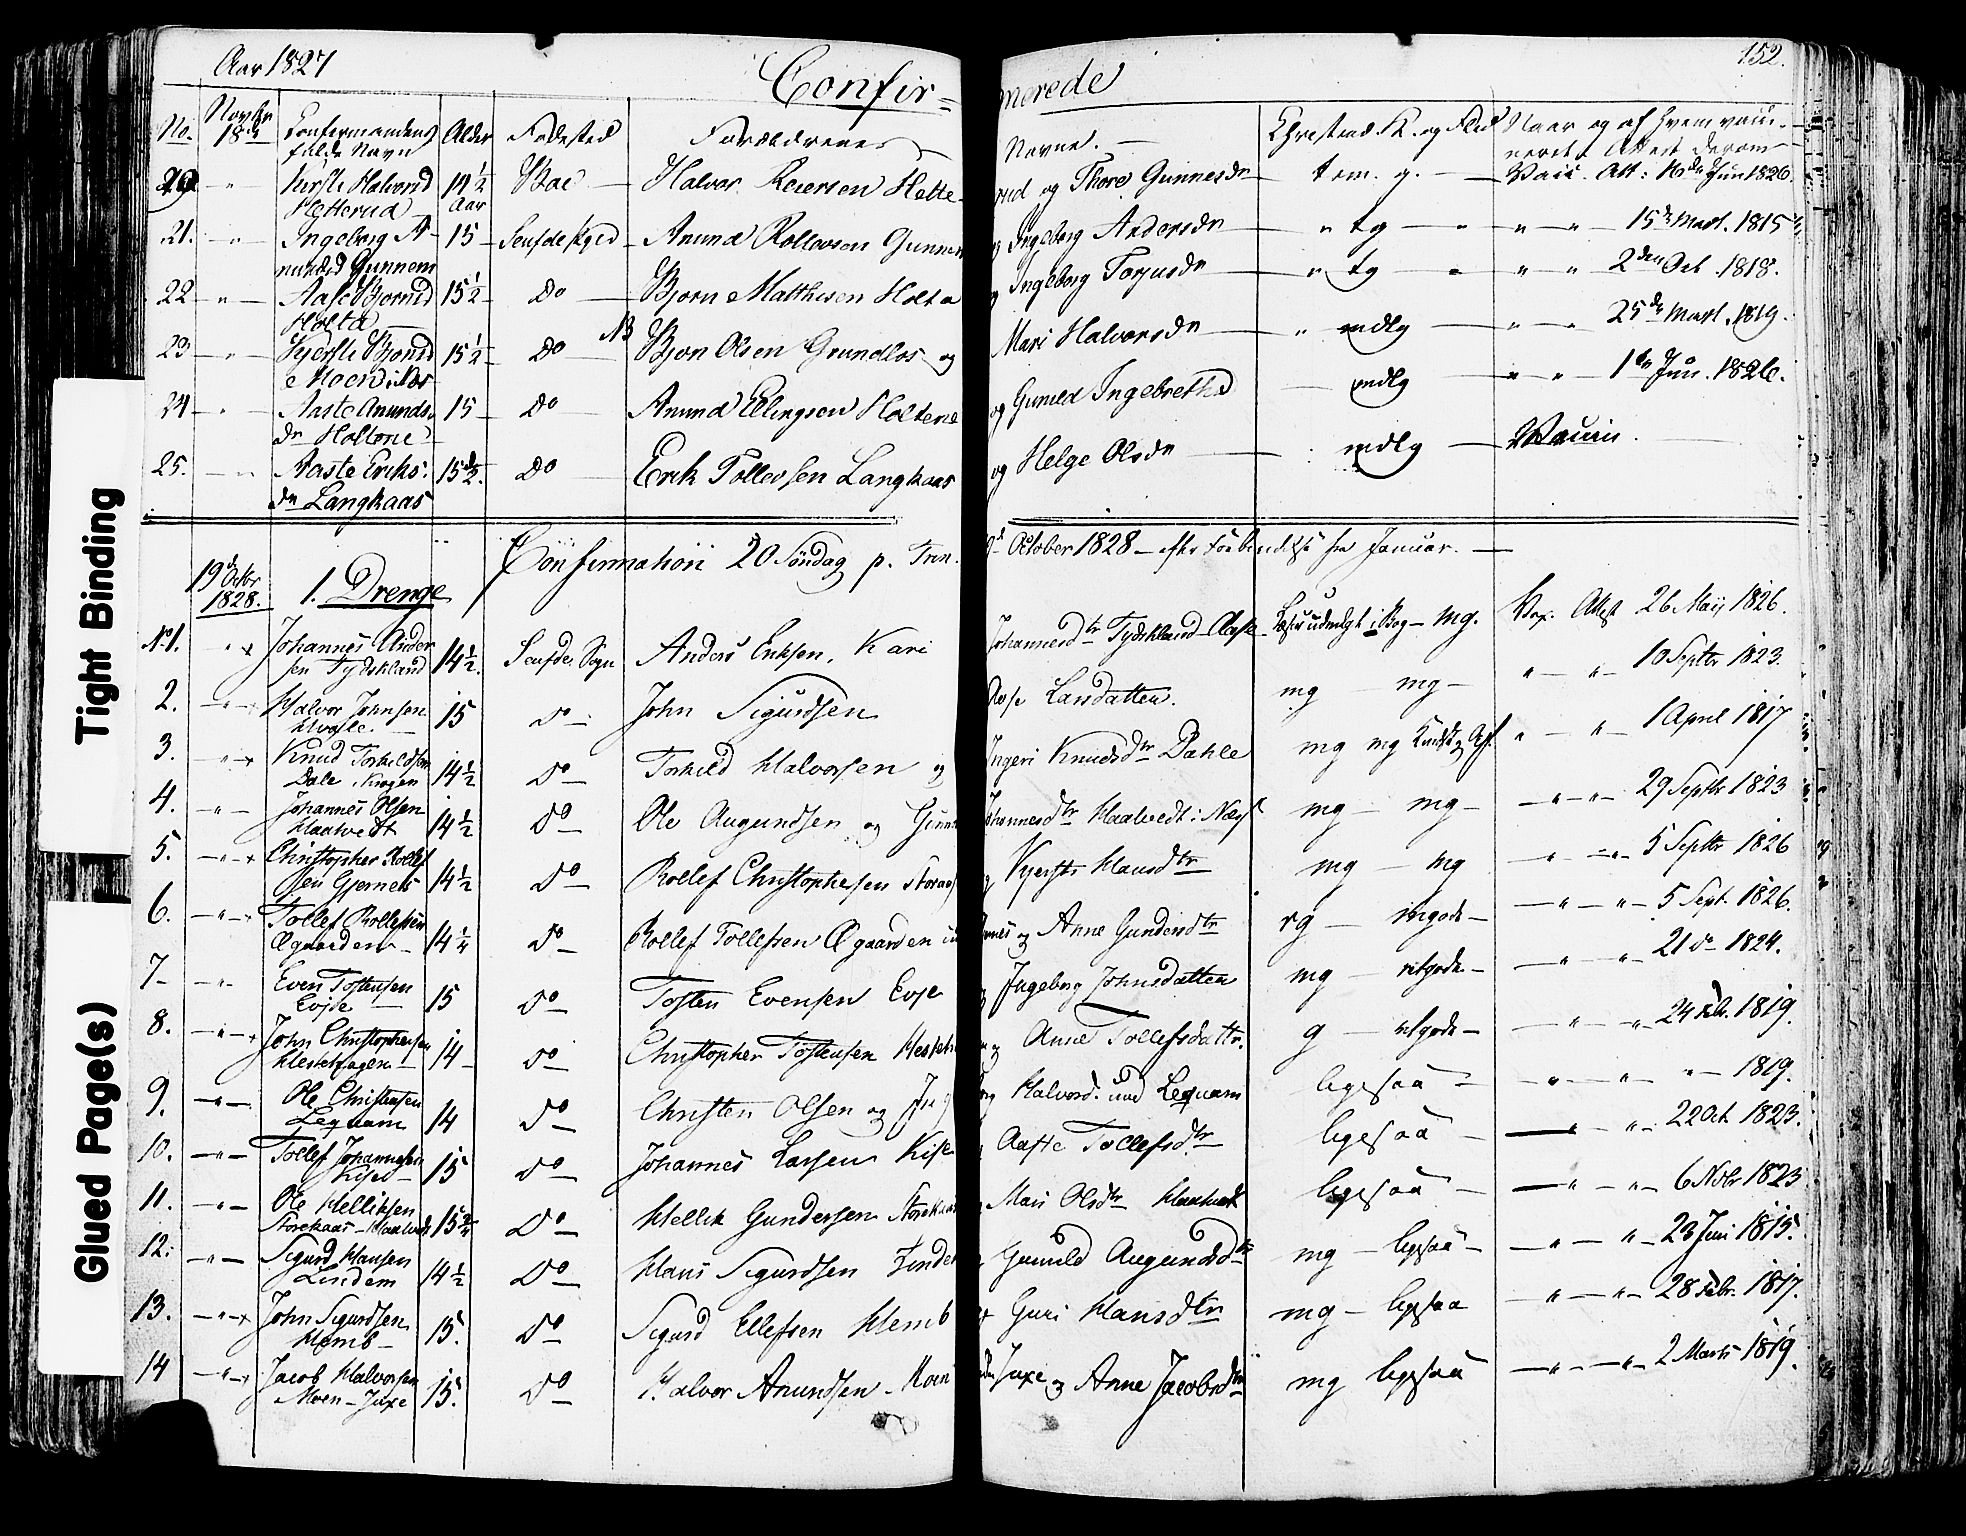 Aar 1827
Confir=
merede
152.
No.
Confirmandens fulde Navn
Alder
Fødested
Forældrenes
Navne.
Christend. K. og Flid
Naar og af hvem vacci-
neret, Attest derom
Halvorsd 14½ Aar
Halvor Reiersen Hette-
rud og Thore Gunnesdr
tem. g.
Vacc. Att: 16de Jun 1826.
21. Ingeborg A-
nundsd Gunnem
15
Anund Rollevsen Gunnem
Ingeborg Andersdr
tg
15de Mart. 1815
22 Aase Bjornsd
Holta
15½ Do
Bjorn Matthisen Holta
Ingeborg Torjusdr
tg
2den Oct. 1818.
23 Kjersti Bjonsd
Moen i Næs
15½ Do NB
Bjon Olsen Grundlos og
Mari Halvorsdr
mdlg
25de Mart. 1819.
24 Aaste Anunds-
dr Holtene
15 Do
Anund Ellingsen Holtene
og Guneld Ingebretsd
mdlg
1ste Jun. 1826.
25. Aaste Eriks-
dr Langkaas
15½ Do
Erik Tollevsen Langkaas
og Helge Olsdr
mdlg
Vaccin.
Confirmation 20 Søndag p. Trin.
October 1828 – efter Forberedelse fra Januar.
19d Octbr
1828.
1. Drenge
No 1. Johannes Ander-
sen Tydskland
14½. Sogn
Anders Eriksen, Kari
Johannesdtr Tydskland
mg.
Vac. Attest 26 Maij 1826.
2. Halvor Johnsen
15 Do
John Sigurdsen
Aase Larsdatter.
mg – mg –
10 Septbr 1823.
3. Knud Torkildsen
Dale i Krogen
14½ Do
Torkild Halvorsen og
Ingeri Knudsdtr Dahle
mg mg
1 April 1817
4. Johannes Olsen
Haatvedt
14½ Do
Ole Augundsen og
Johannesdtr Haatvedt i Næs
mg – mg –
29 Septbr 1823
5. Christopher Rollef-
sen Gjernes
14½ Do
Rollef Christophersen
Kjersti Hansdtr
mg – mg
5 Septbr 1826
6. Tollef Rollefsen
Øgaarden
14¼ Do
Rollef Tollefsen Øgaarden
og Anne Gundersdtr
5 Sept. 1826.
7 Even Tostensen
Evje
15 Do
Tosten Evensen Evje
Ingeborg Johnsdatter
mg
21 Do 1824.
8. John Christophersen
Hestehagen
14 Do
Christopher Tostensen
og Anne Tollefsdattr.
g
24 Febr. 1819.
9. Ole Christensen
Leqvam
14 Do
Christen Olsen og Ing
borg Halvorsd. Leqvam
ligesaa
1819.
10. Tollef Johannesen
Kise
15 Do
Johannes Larsen Kise
Aaste Tollefsdtr
ligesaa
22 Oct 1823.
11. Ole Helliksen
Storekaas – Haatvedt
Do
Hellik Gundersen Storekaas
Mari Olsdtr Haatvedt
ligesaa
6 Novbr 1823
12. Sigurd Hansen
Lindem
14½ Do
Hans Sigurdsen Lindem
Gunild Augundsdtr
mg – ligesaa –
23 Juni 1815.
13. John Sigurdsen
Hemb
15. Do
Sigurd Ellefsen Hemb
Guri Hansdtr
mg – ligesaa
28 Febr. 1817.
14 Jacob Halvorsen
Moen – Juxe
15. Do
Halvor Anundsen Moen
Juxe og Anne Jacobsdtr
mg ligesaa
2 Marts 1819.
Tight Binding
Glued Page(s)